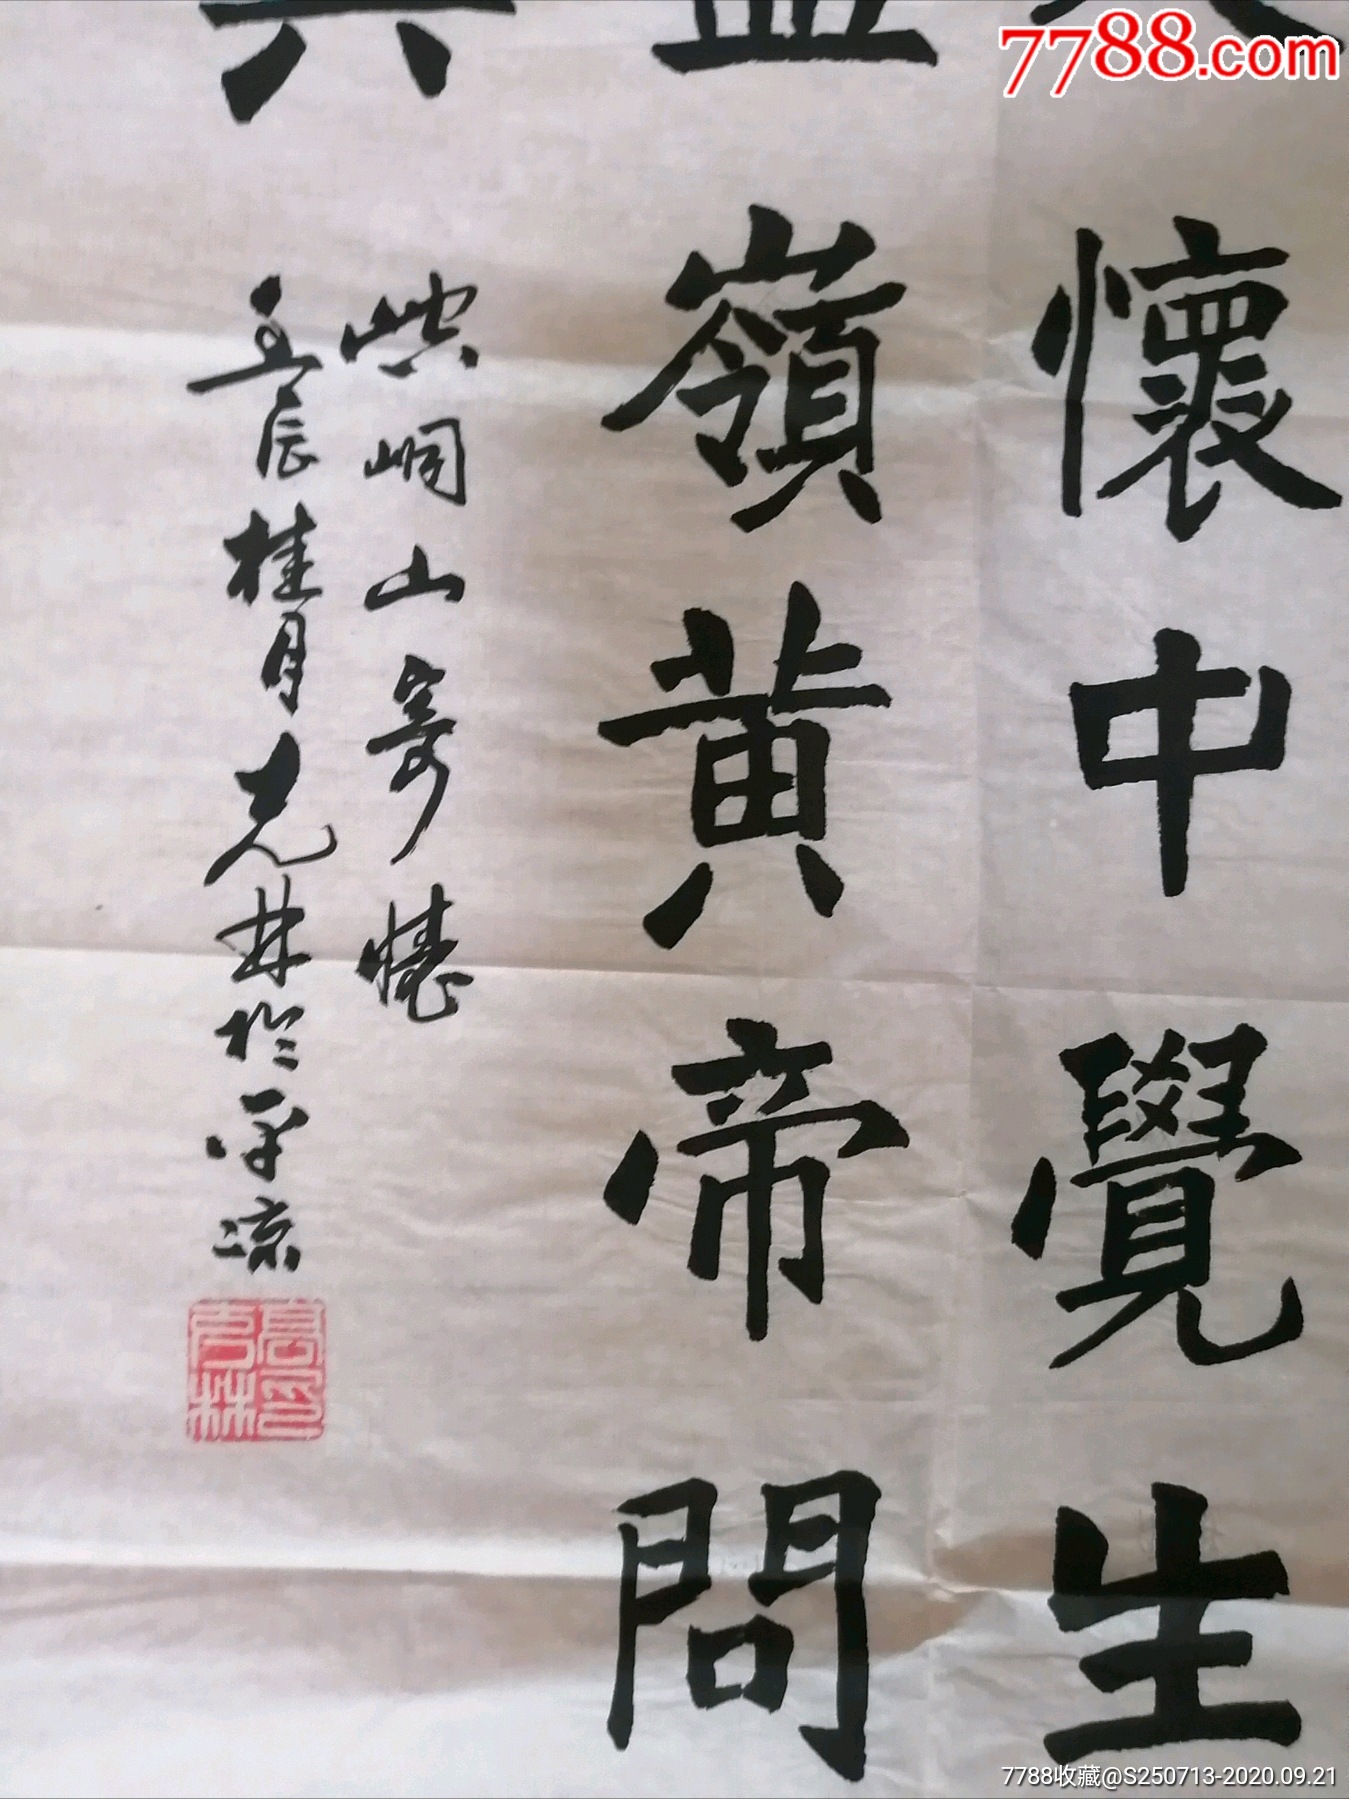 7788.com
懷中覺生
嶺黃帝問
崆峒山寄懷
壬辰桂月克林於平涼
高克林印
7788收藏@S250713-2020.09.21